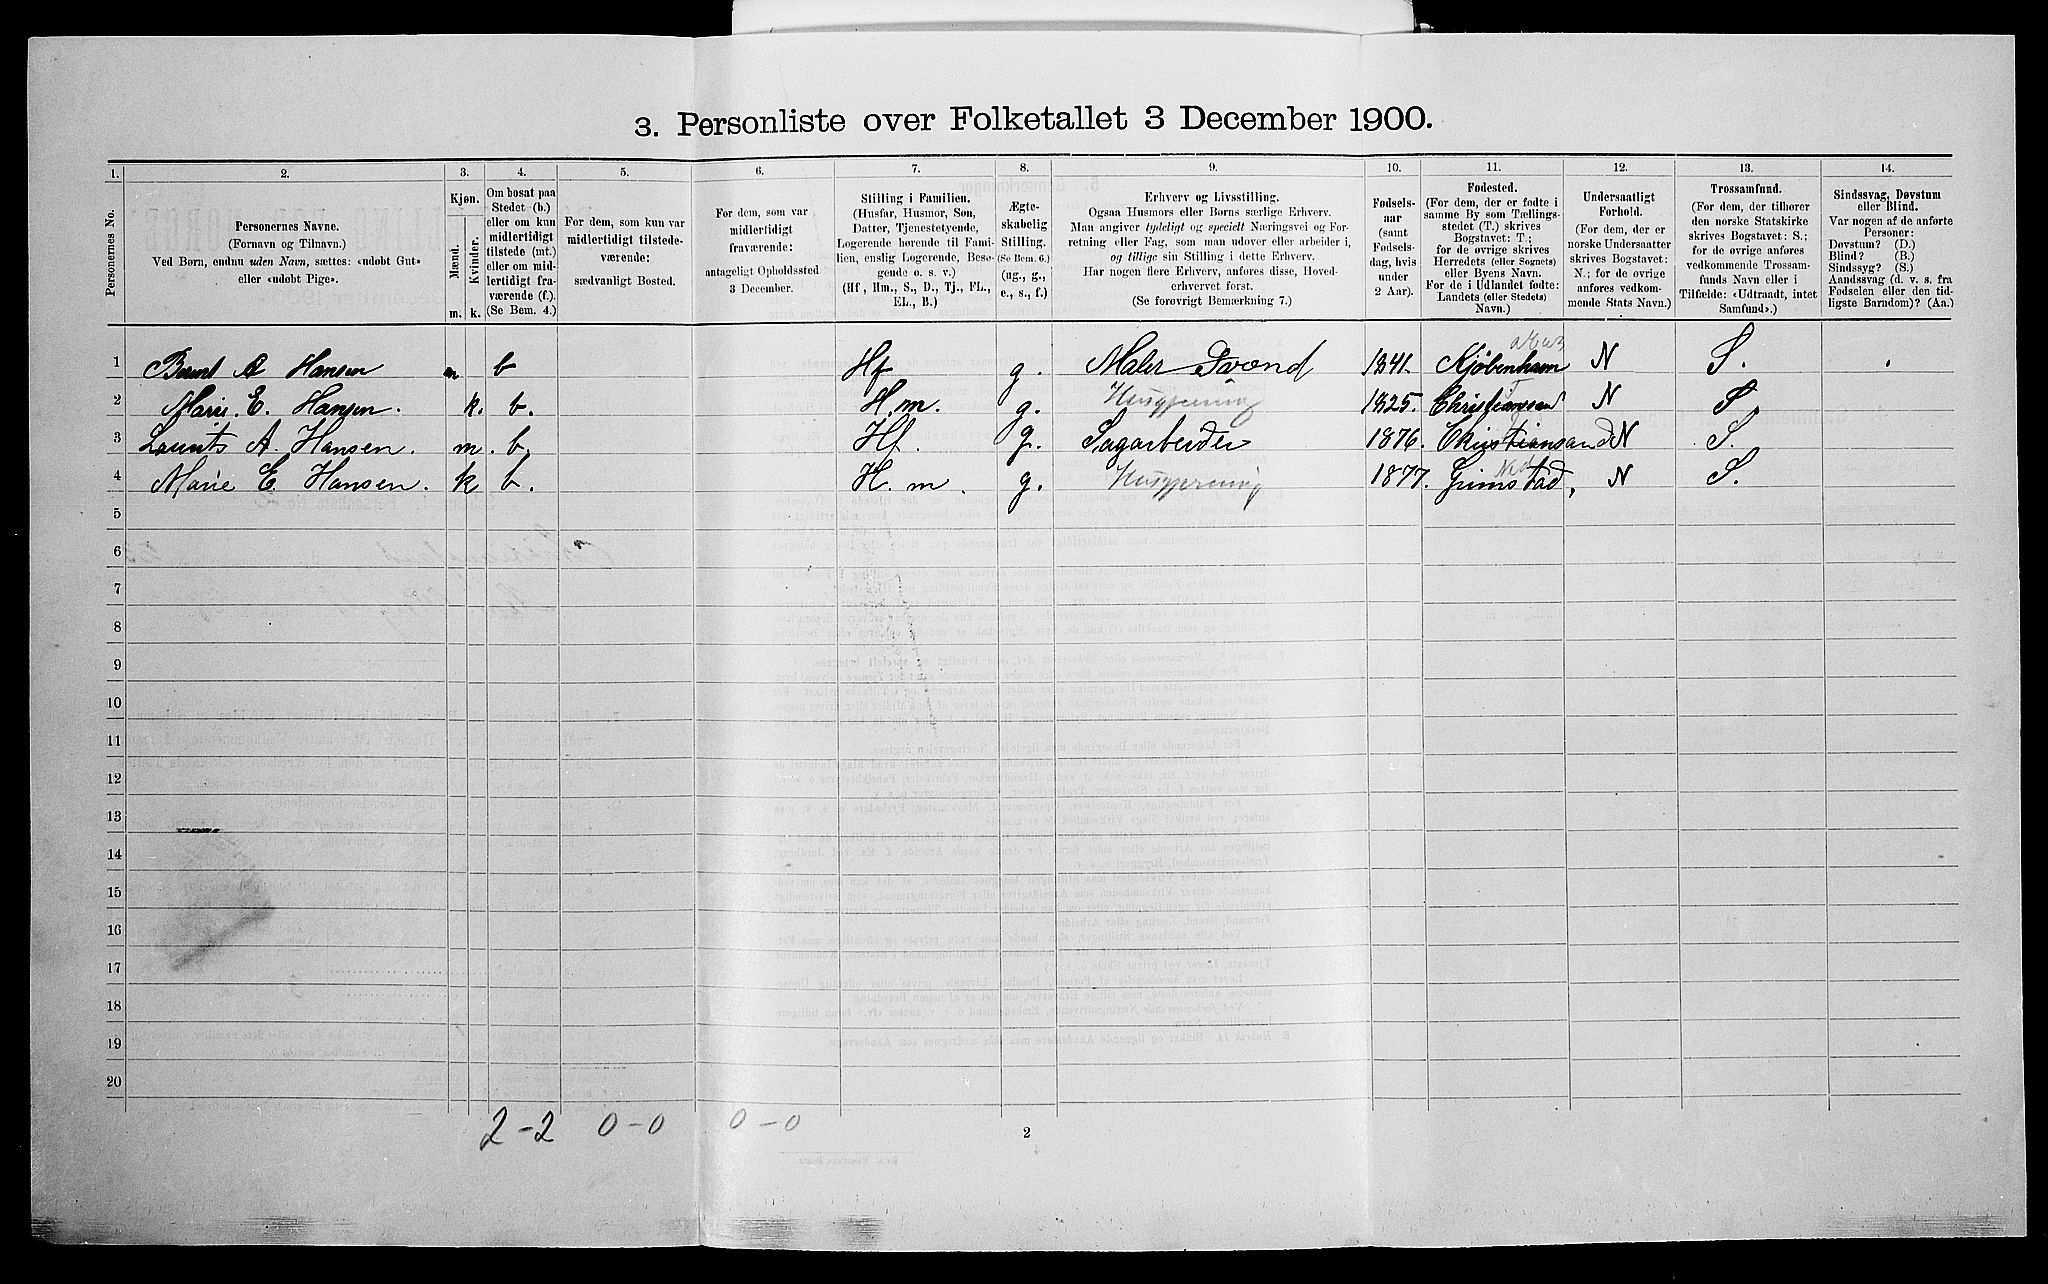 3. Personliste over Folketallet 3 December 1900.
1. 2. 3. 4. 5. 6. 7. 8. 9. 10. 11. 12. 13. 14.
Personernes No.
Personernes Navne.
(Fornavn og Tilnavn.)
Ved Børn, endnu uden Navn, sættes: «udøbt Gut»
eller «udøbt Pige».
Kjøn.
Mænd. Kvinder.
m. k.
Om bosat paa
Stedet (b.)
eller om kun
midlertidigt
tilstede (mt.)
eller om mid-
lertidigt fra-
værende (f.).
(Se Bem. 4.)
For dem, som kun var
midlertidigt tilstede-
værende:
sædvanligt Bosted.
For dem, som var
midlertidigt
fraværende:
antageligt Opholdssted
3 December.
Stilling i Familien.
(Husfar, Husmor, Søn,
Datter, Tjenestetyende,
Logerende hørende til Fami-
lien, enslig Logerende, Besø-
gende o. s. v.)
(Hf, Hm., S., D., Tj., FL.,
EL., B.)
Ægte-
skabelig
Stilling.
(Se Bem. 6.)
(ug., g.,
e., s., f.)
Erhverv og Livsstilling.
Ogsaa Husmors eller Børns særlige Erhverv.
Man angiver tydeligt og specielt Næringsvei og For-
retning eller Fag, som man udøver eller arbeider i,
og tillige sin Stilling i dette Erhverv.
Har nogen flere Erhverv, anføres disse, Hoved-
erhvervet forst.
(Se forøvrigt Bemærkning 7.)
Fødsels-
aar
(samt
Fødsels-
dag, hvis
under
2 Aar).
Fødested.
(For dem, der er fødte i
samme By som Tællings-
stedet (T.) skrives
Bogstavet: T.;
for de øvrige skrives
Herredets (eller Sognets)
eller Byens Navn.
For de i Udlandet fødte:
Landets (eller Stedets)
Navn.)
Undersaatligt
Forhold.
(For dem, der er
norske Undersaatter
skrives Bogstavet:
N.; for de øvrige
anføres vedkom-
mende Stats Navn.)
Trossamfund.
(For dem, der tilhører
den norske Statskirke
skrives Bogstavet: S.;
for de øvrige anføres
vedkommende Trossam-
funds Navn eller i
Tilfælde: «Udtraadt, intet
Samfund».)
Sindssvag, Døvstum
eller Blind.
Var nogen af de anførte
Personer:
Døvstum? (D.)
Blind? (B.)
Sindssyg? (S.)
Aandssvag (d. v. s. fra
Fødselen eller den tid-
ligste Barndom)? (Aa.)
1 Bernt A Hansen m b Hf g. Maler Svend 1841. Kjøbenhavn N S.
2 Marie. E. Hansen. k. b. H.m. g. Husgjerning 1825. Christianssand N S.
3 Laurits A. Hansen. m. b. Hf. g. Sagarbeider 1876. Christiansand N S.
4 Marie E. Hansen. k b. H. m. g. Husgjerning 1877. Grimstad, N S.
5
6
7
8
9
10
11
12
13
14
15
16
17
18
19
20
2-2 0-0 0-0
2